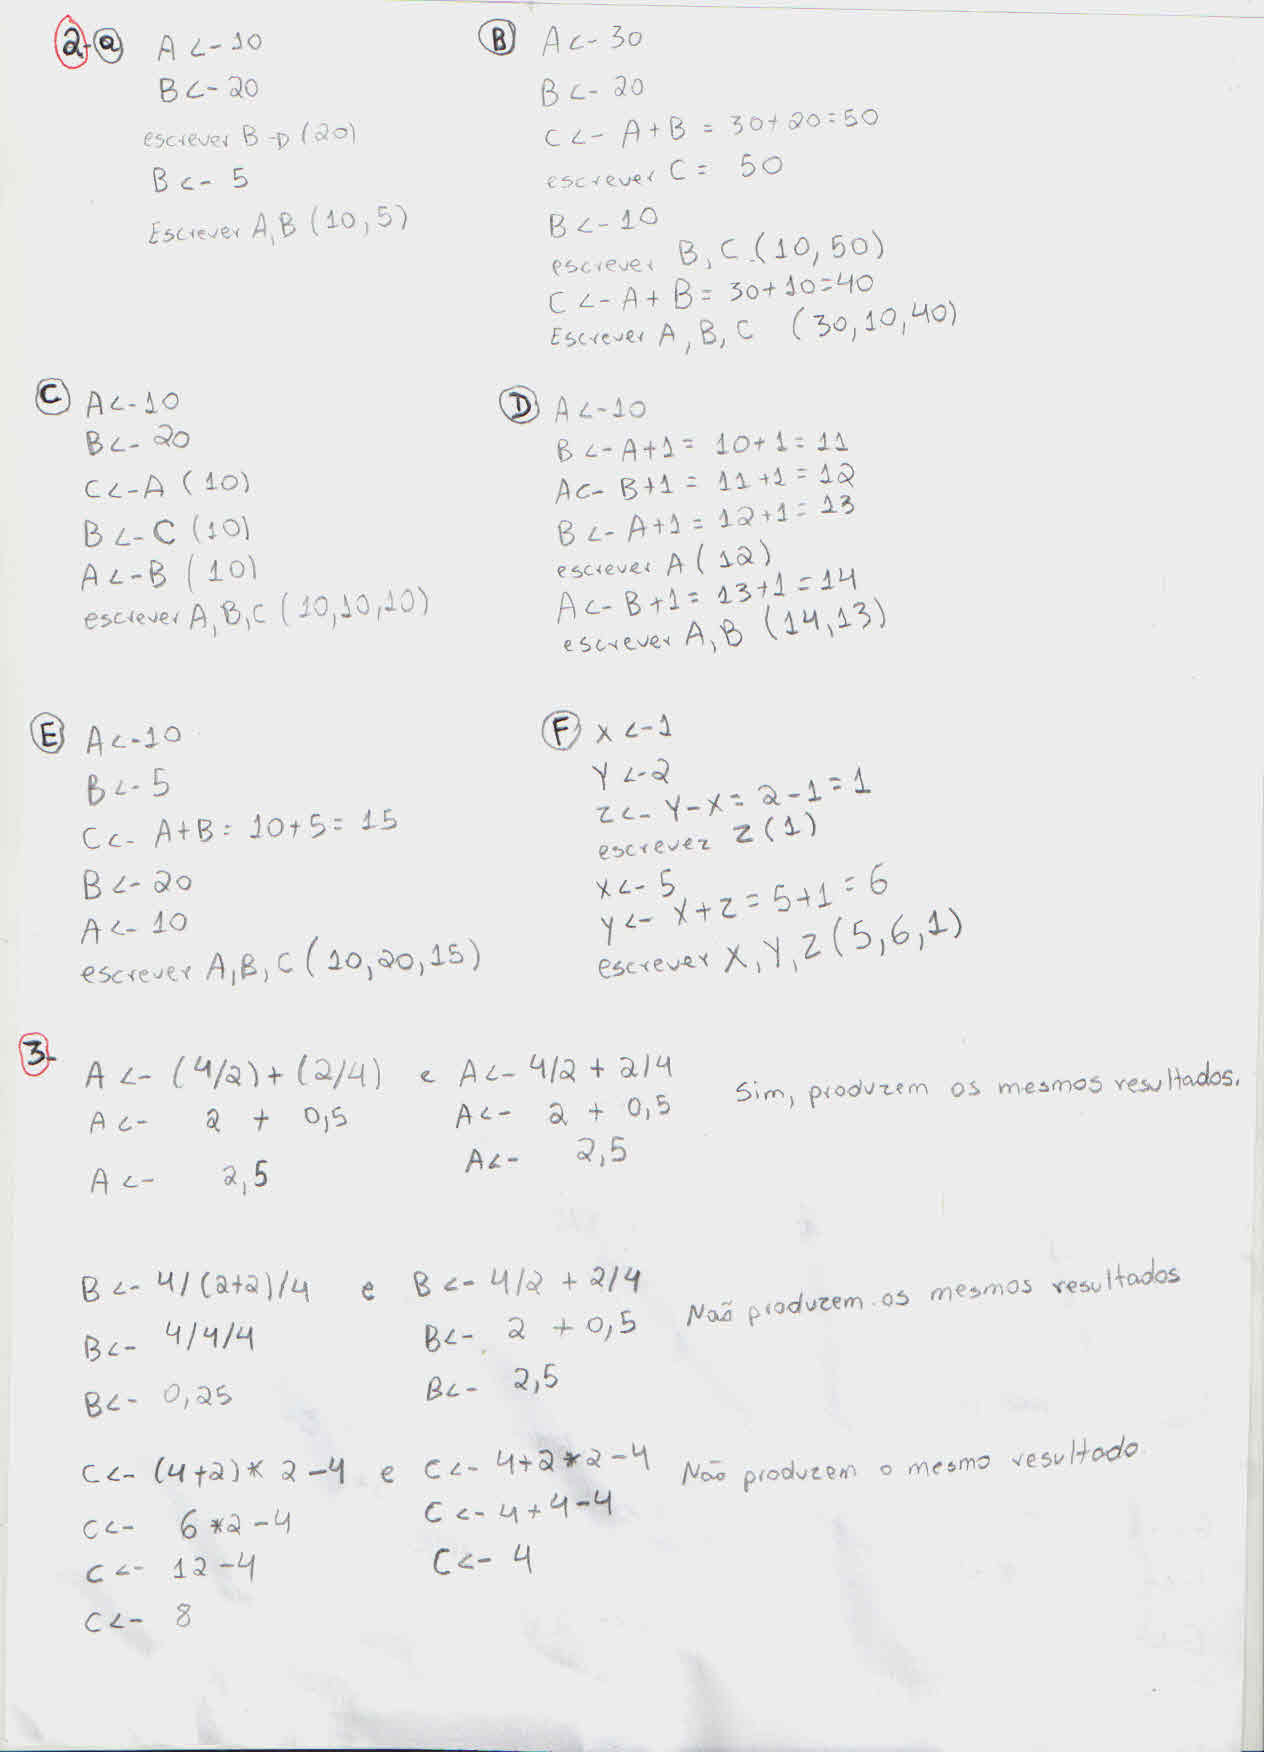 2-a A <- 10
B <- 20
escrever B -D (20)
B <- 5
Escrever A, B (10, 5)
B A <- 30
B <- 20
C <- A + B = 30 + 20 = 50
escrever C = 50
B <- 10
escrever B, C. (10, 50)
C <- A + B = 30 + 10 = 40
Escrever A, B, C (30, 10, 40)
C A <- 10
B <- 20
C <- A (10)
B <- C (10)
A <- B (10)
escrever A, B, C (10, 10, 10)
D A <- 10
B <- A+1 = 10+1 = 11
A <- B+1 = 11+1 = 12
B <- A+1 = 12+1 = 13
escrever A (12)
A <- B+1 = 13+1 = 14
escrever A, B (14, 13)
E A <- 10
B <- 5
C <- A+B = 10+5 = 15
B <- 20
A <- 10
escrever A, B, C (10, 20, 15)
F X <- 1
Y <- 2
Z <- Y-X = 2-1 = 1
escrever Z (1)
X <- 5
Y <- X+Z = 5+1 = 6
escrever X, Y, Z (5, 6, 1)
3- A <- (4/2) + (2/4) e A <- 4/2 + 2/4 Sim, produzem os mesmos resultados.
A <- 2 + 0,5 A <- 2 + 0,5
A <- 2,5 A <- 2,5
B <- 4/(2+2)/4 e B <- 4/2 + 2/4 Não produzem os mesmos resultados
B <- 4/4/4 B <- 2 + 0,5
B <- 0,25 B <- 2,5
C <- (4+2) * 2 - 4 e C <- 4+2*2-4 Não produzem o mesmo resultado
C <- 6*2-4 C <- 4+4-4
C <- 12-4 C <- 4
C <- 8